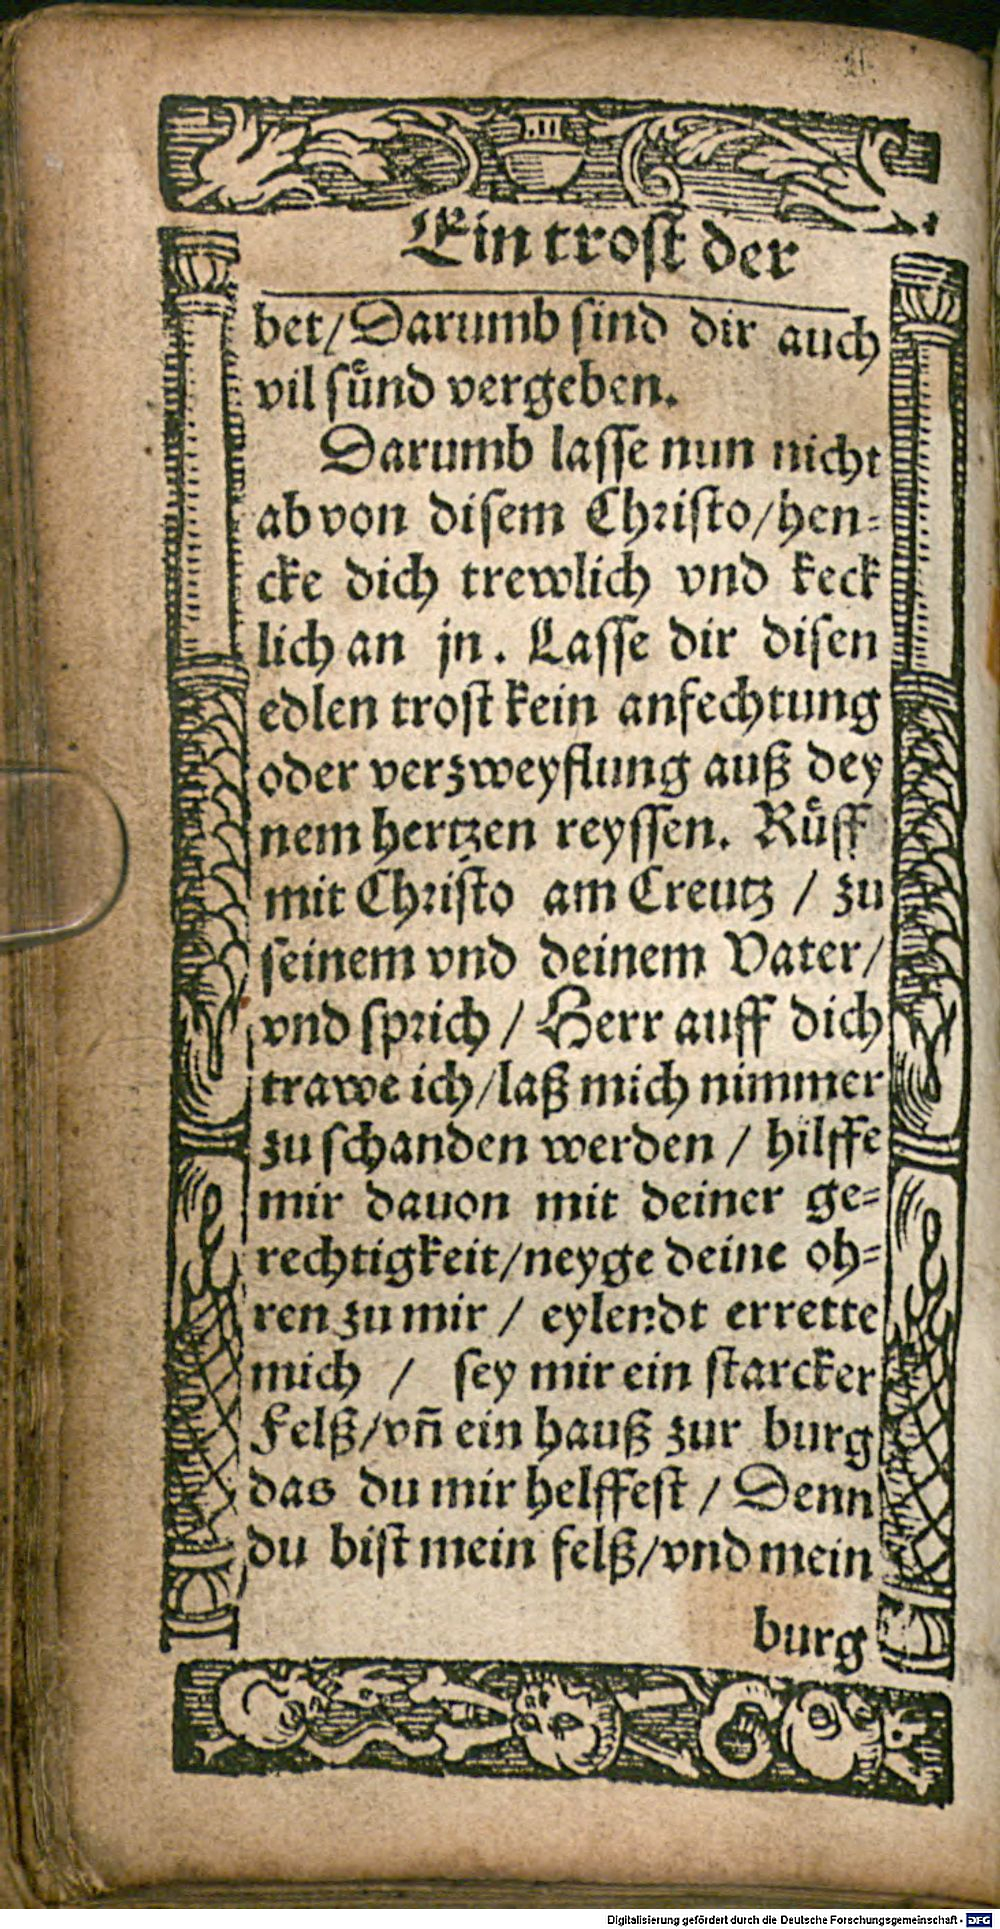 Ein trost der
bet/Darumb sind dir auch
vil suͤnd vergeben.
Darumb lasse nun nicht
ab von disem Christo/hen⸗
cke dich trewlich vnd keck
lich an jn. Lasse dir disen
edlen trost kein anfechtung
oder verzweyflung auß dey
nem hertzen reyssen. Ruͤff
mit Christo am Creutz / zu
seinem vnd deinem Vater/
vnd sprich / Herr auff dich
trawe ich/laß mich nimmer
zu schanden werden / hilffe
mir dauon mit deiner ge⸗
rechtigkeit/neyge deine oh⸗
ren zu mir / eylendt errette
mich / sey mir ein starcker
Felß/vñ ein hauß zur burg
das du mir helffest / Denn
du bist mein felß/vnd mein
burg
Digitalisierung gefördert durch die Deutsche Forschungsgemeinschaft - DFG